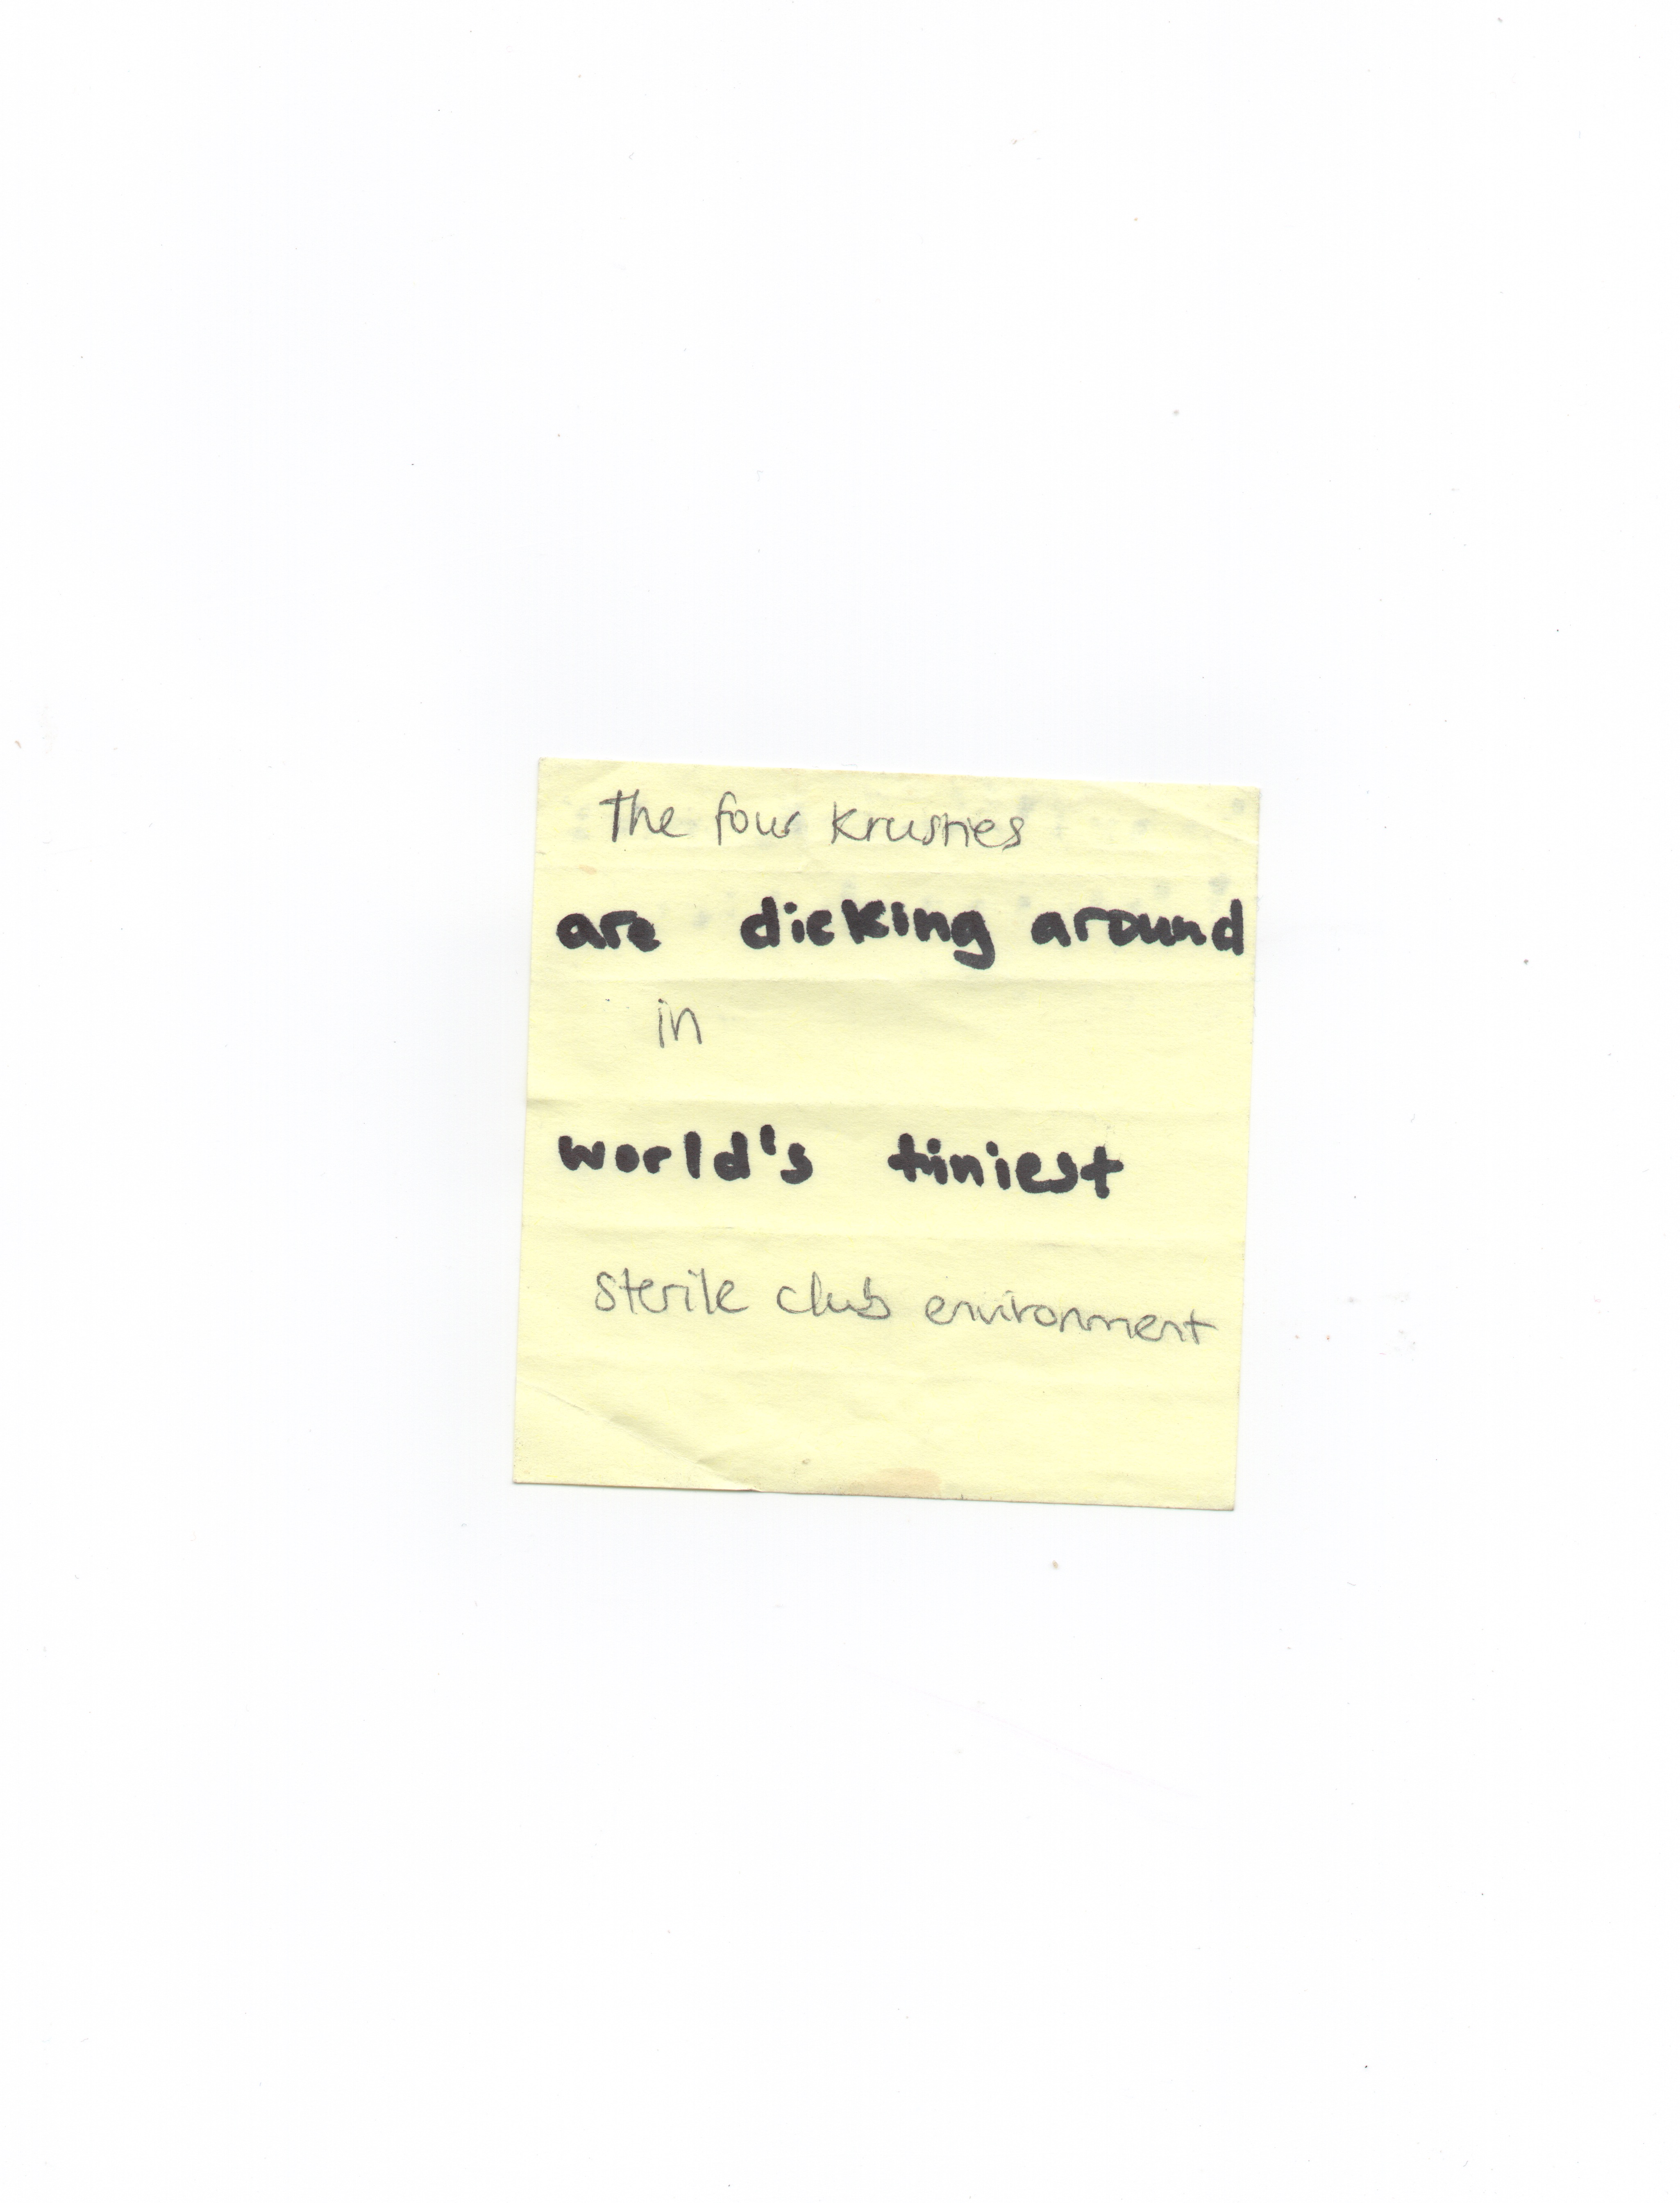 The four Krusties
are dicking around
in
world's tiniest
sterile club environment